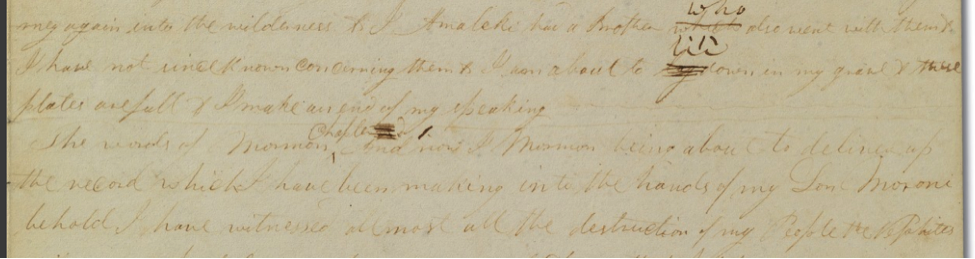 who
ney again into the wilderness & I Amaleki had a Brother also went with them &
lie
I have not since known concerning them & I am about to down in my grave & these
plates are full & I make an end of my speaking
Chapter
The words of Mormon, And now I Mormon being about to deliver up
the record which I have been making into the hands of my Son Moroni
behold I have witnessed almost all the destruction of my People the Nephites